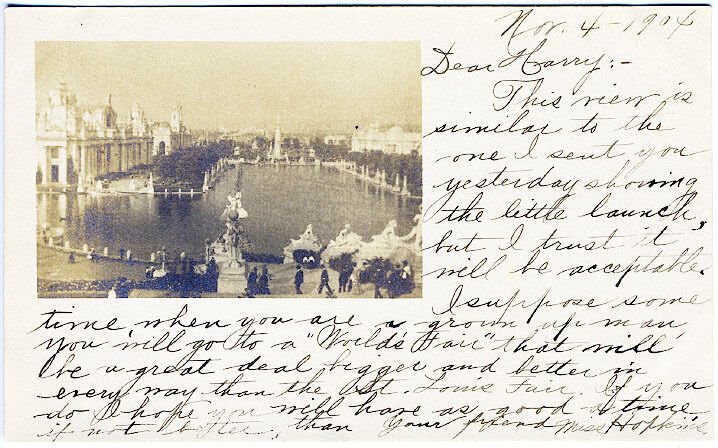 Nov. 4 - 1904
Dear Harry:-
This view is
similar to the
one I sent you
yesterday showing
the little launch,
but I trust it
will be acceptable.
I suppose some
time, when you are a grown up man,
you will go to a "World's Fair" that will
be a great deal bigger and better in
every way than the St. Louis Fair. If you
do I hope you will have as good a time
if not better, than your friend Miss Hopkins